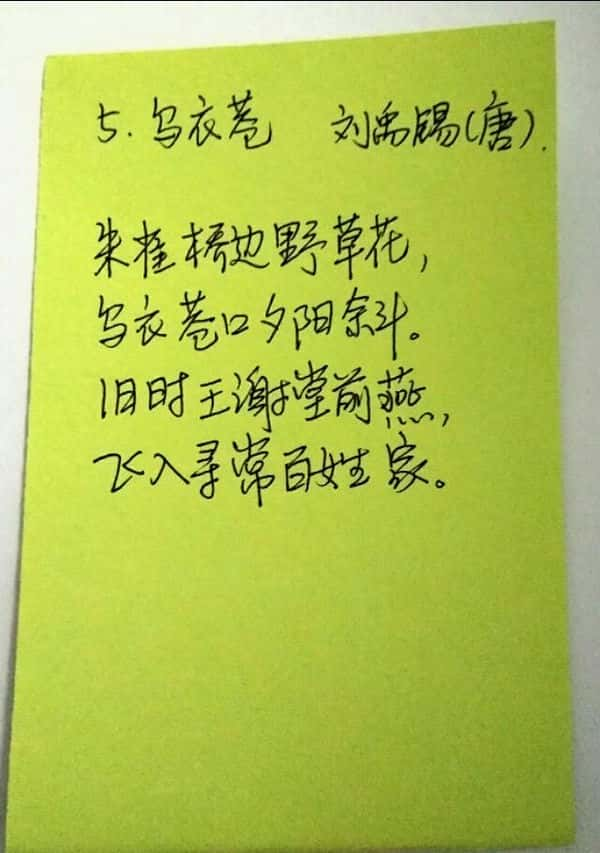 5. 乌衣巷 刘禹锡(唐).
朱雀桥边野草花,
乌衣巷口夕阳斜。
旧时王谢堂前燕,
飞入寻常百姓家。